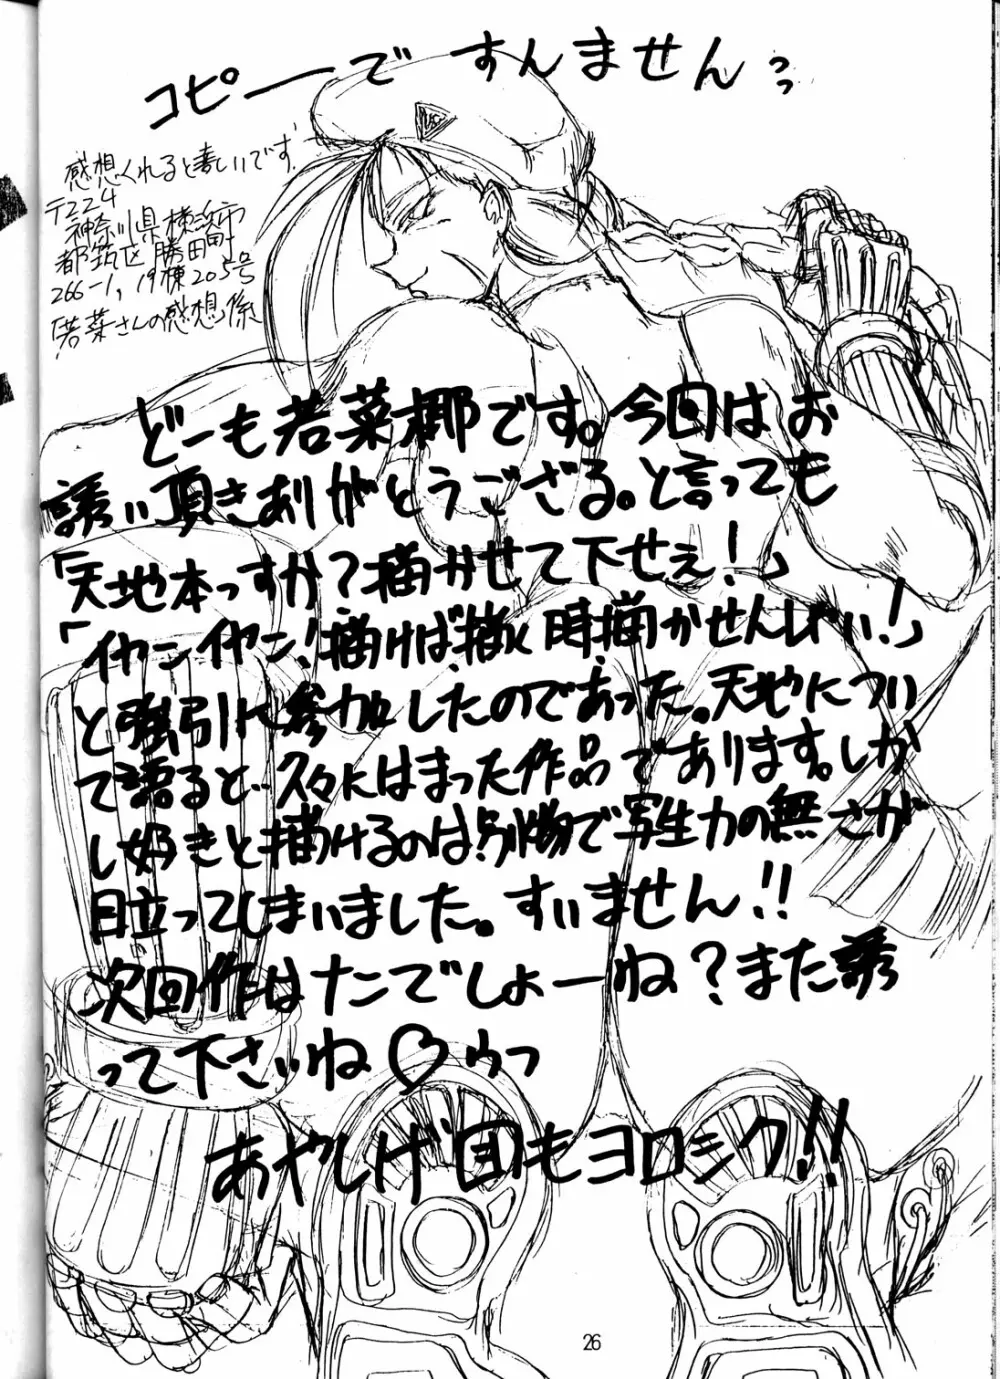 コピーですんませんっ
感想くれると嬉しいです。
〒224
神奈川県横浜市
都筑区勝田町
266-1, 19棟205号
若菜さんの感想係
どーも若菜椰です。今回はお
誘い頂きありがとうござる。と言っても
「天地本っすか?描かせて下せぇ!」
「イヤンイヤン!描けば描く時描かせんしゃい!」
と強引に参加したのであった。天地につい
て語ると…久々にはまった作品であります。しか
し好きと描けるのは別物で写生力の無さが
目立ってしまいました。すいません!!
次回作はナニでしょーね?また誘
って下さいね♡ウフ
あやしげ団もヨロシク!!
26